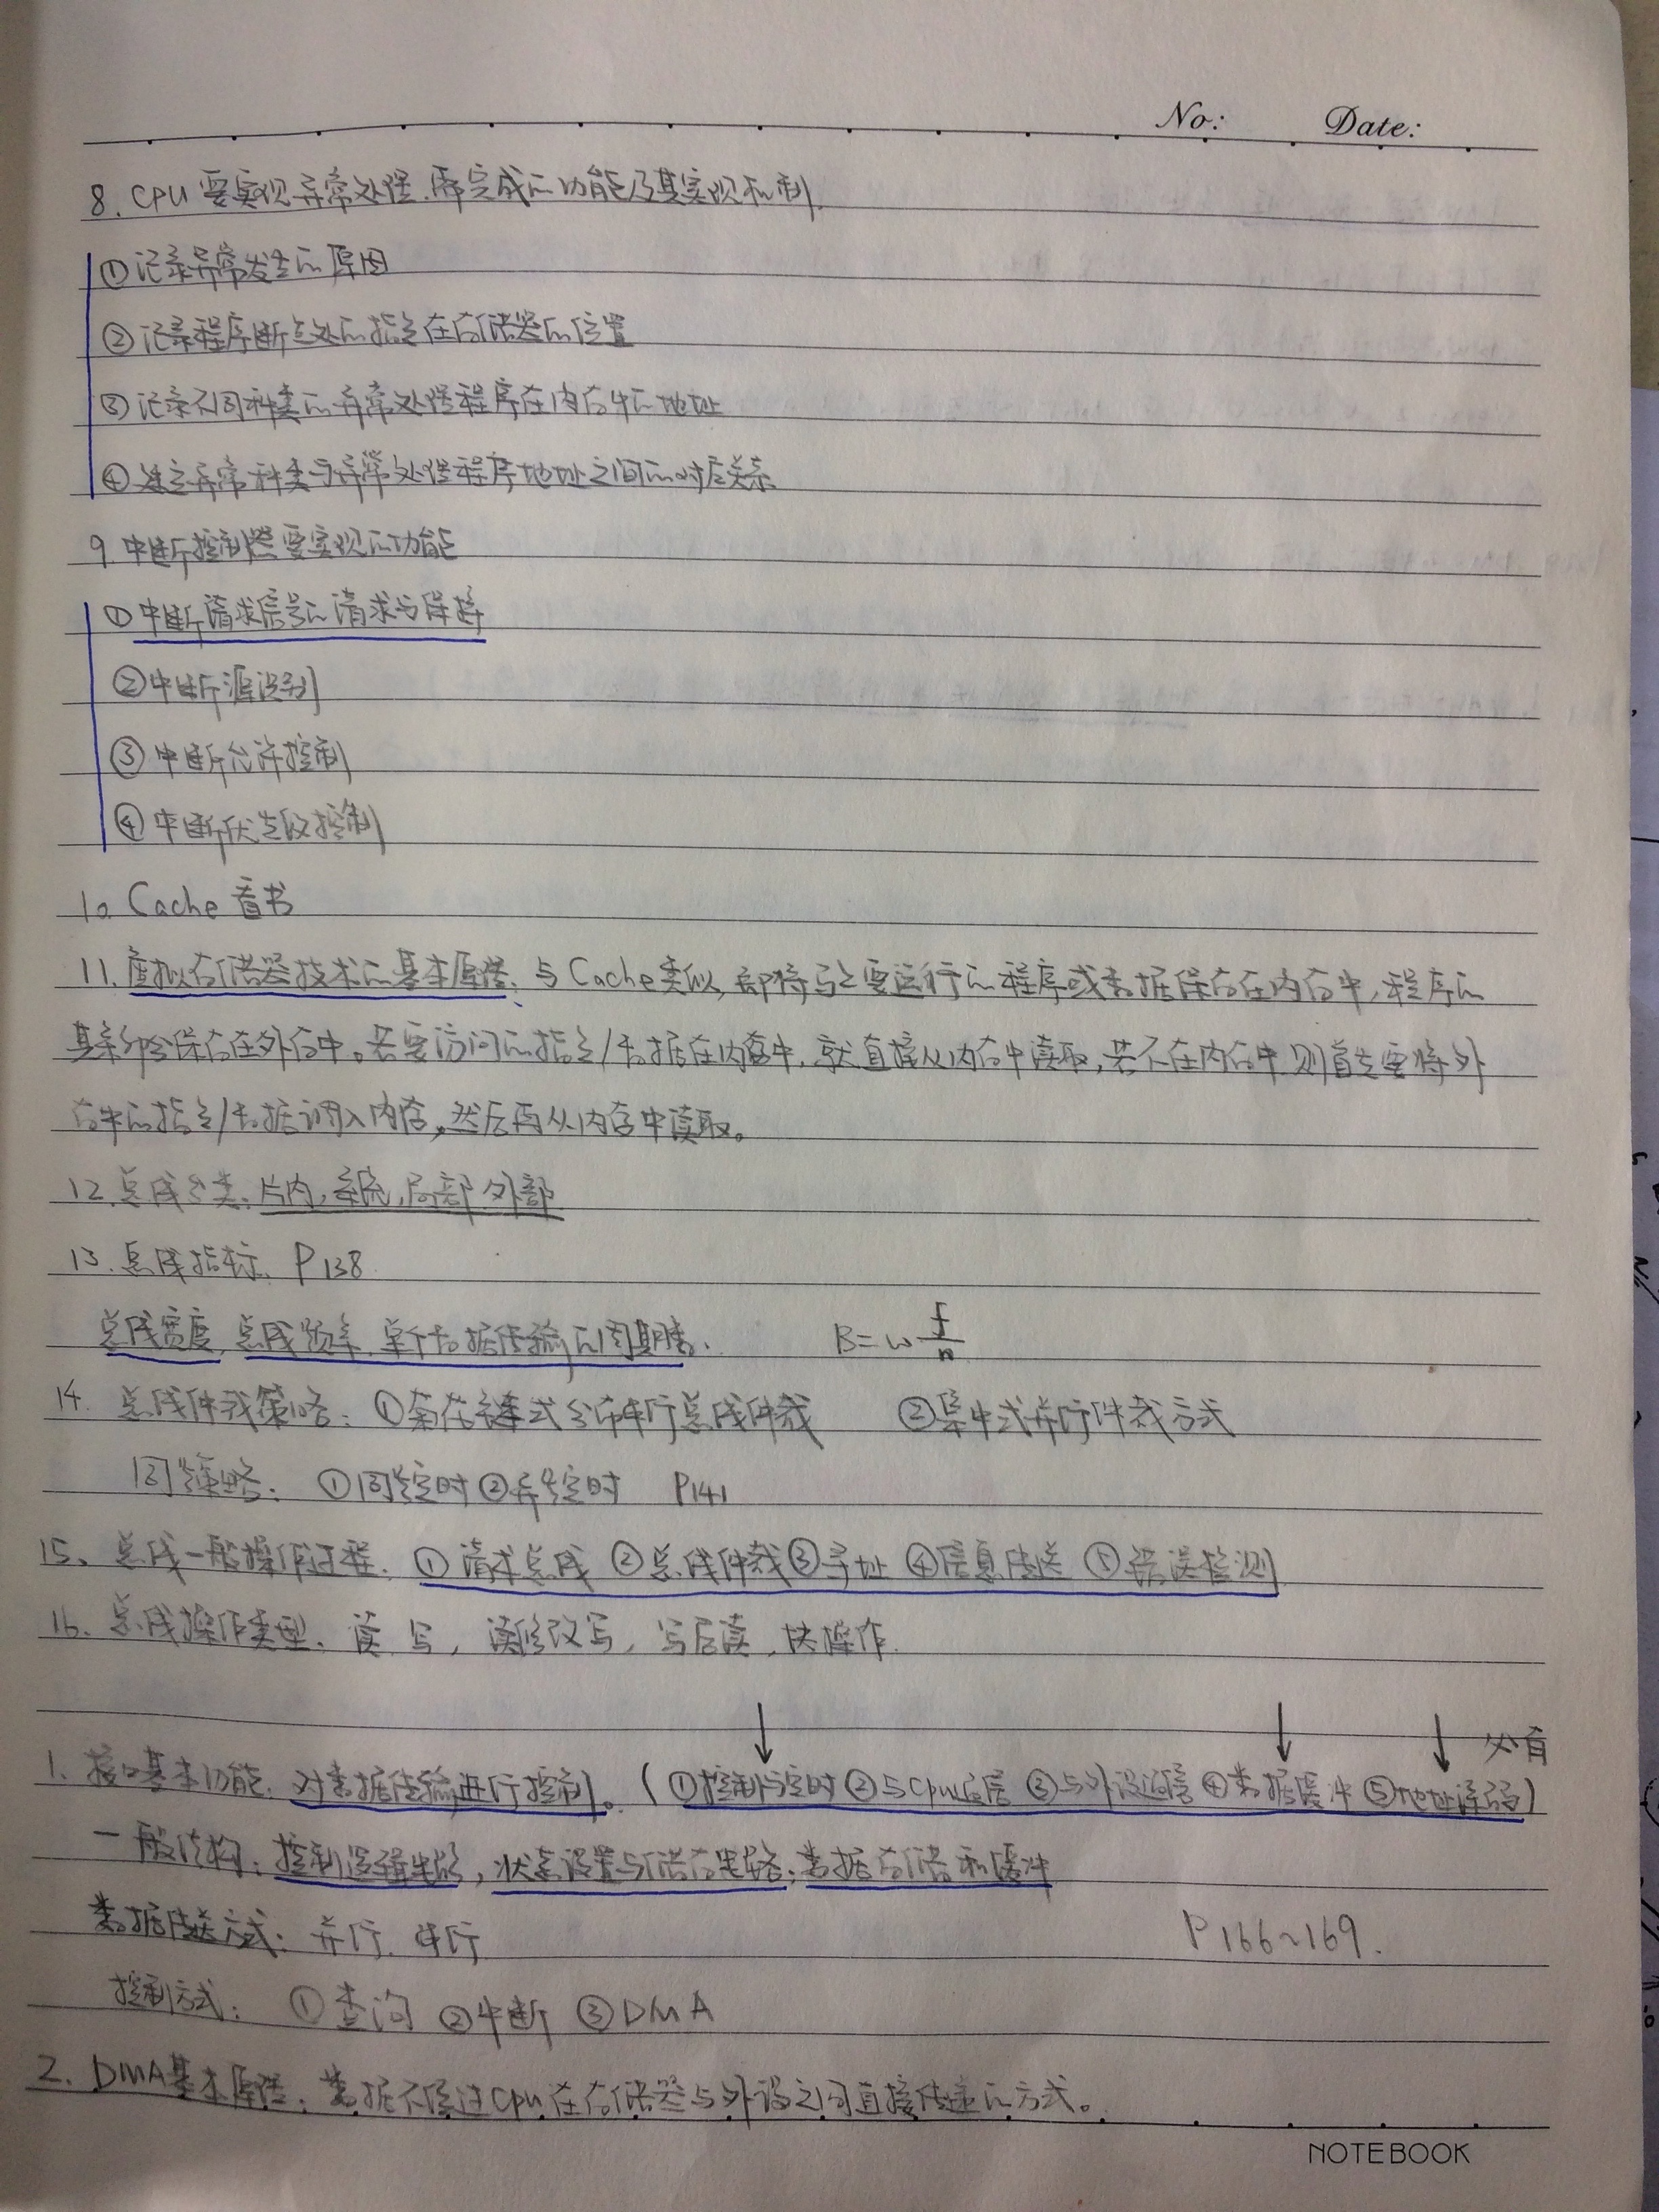 No: Date:
8. CPU要实现异常处理,需完成的功能及其实现机制.
①记录异常发生的原因
②记录程序断点处的指令在存储器的位置
③记录不同种类的异常处理程序在内存中的地址
④建立异常种类与异常处理程序地址之间的对应关系
9.中断控制器要实现的功能
①中断请求信号的请求与保持
②中断源识别
③中断允许控制
④中断优先级控制
10. Cache 看书
11.虚拟存储器技术的基本原理:与Cache类似,都将马上要运行的程序或数据保存在内存中,程序的
其余部分保存在外存中。若要访问的指令/数据在内存中,就直接从内存中读取,若不在内存中则首先要将外
存中的指令/数据调入内存,然后再从内存中读取。
12.总线分类:片内,系统,局部,外部
13.总线指标. P138
总线宽度,总线频率,单个数据传输的周期数. B=w f/n
14. 总线仲裁策略:①菊花链式分布串行总线仲裁 ②集中式并行仲裁方式
同步策略:①同步定时②异步定时 P141
15、总线一般操作过程:①请求总线②总线仲裁③寻址④信息传送⑤错误检测
16、总线操作类型:读,写,读修改写,写后读,块操作.
必有
1. 接口基本功能:对数据传输进行控制。(①控制与定时②与CPU通信③与外设通信④数据缓冲⑤地址译码)
一般结构:控制逻辑电路,状态设置与储存电路,数据存储和缓冲
数据传送方式:并行.串行 P166~169.
控制方式:①查询②中断③DMA
2. DMA基本原理:数据不经过CPU在存储器与外设之间直接传递的方式。
NOTEBOOK